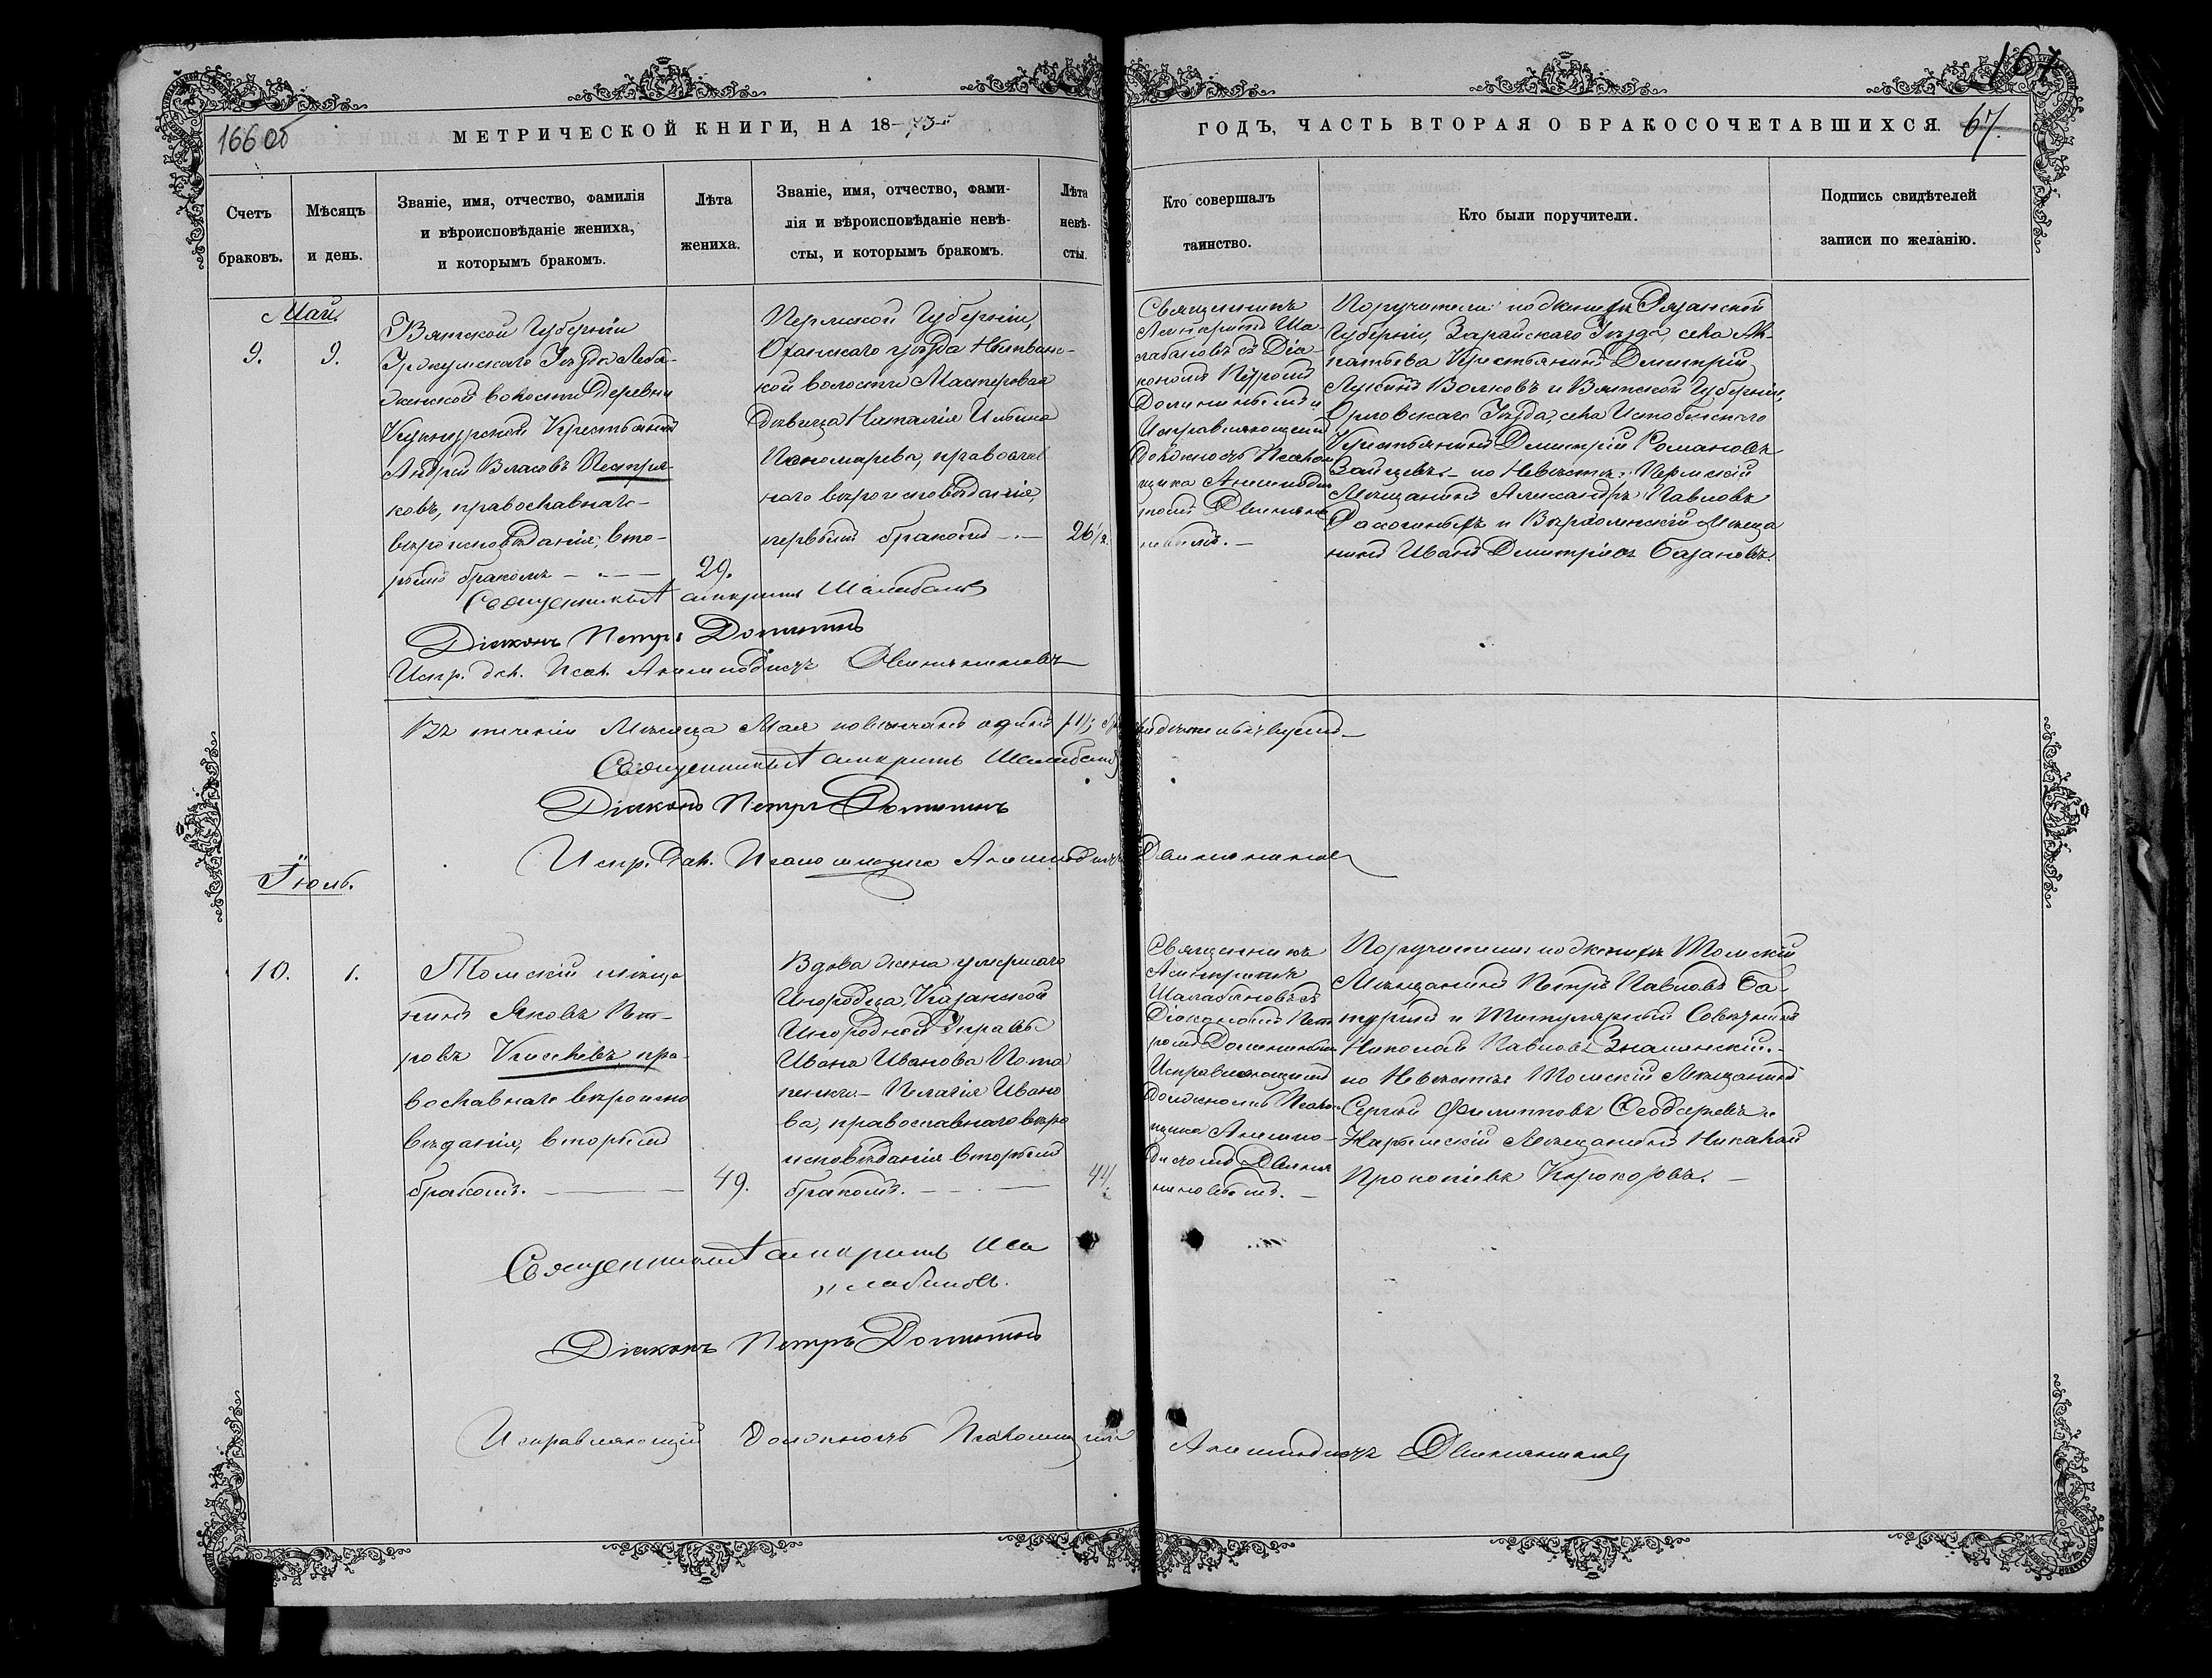 166 об
МЕТРИЧЕСКОЙ КНИГИ, НА 18-73-й
ГОДЪ, ЧАСТЬ ВТОРАЯ О БРАКОСОЧЕТАВШИХСЯ.
167
67.
Счетъ
браковъ.
Мѣсяцъ
и день.
Званіе, имя, отчество, фамилія
и вѣроисповѣданіе жениха,
и которымъ бракомъ.
Лѣта
жениха.
Званіе, имя, отчество, фами-
лія и вѣроисповѣданіе невѣ-
сты, и которымъ бракомъ.
Лѣта
невѣ-
сты.
Кто совершалъ
таинство.
Кто были поручители.
Подпись свидѣтелей
записи по желанію.
Май.
9.
9.
Вятской Губерніи
Уржумскаго Уѣзда Леба-
жской волости деревни
Крестьянинъ
Андрей Власовъ Пестря-
ковъ, православнаго
вѣроисповѣданія, вто-
рымъ бракомъ
29.
Пермской Губерніи,
Оханскаго уѣзда Нытвинс-
кой волости Мастеровая
дѣвица Наталія Ильина
Пономарева, православ
наго вѣроисповѣданія,
первымъ бракомъ
26 1/2.
Священникъ
Асинкритъ Ша-
лабановъ съ Діа-
кономъ Петромъ
и
Исправляющимъ
должность Псалом
щика Анемподис
томъ Двиняни
новымъ.
Поручители: по женихѣ Рязанской
Губерніи, Зарайскаго Уѣзда, села
Крестьянинъ Димитрій
Лукинъ Волковъ и Вятской Губерніи,
Орловскаго Уѣзда, села Истобенского
Крестьянинъ Димитрій Романовъ
Зайцевъ по Невѣстѣ: Пермскій
Мѣщанинъ Александръ Павловъ
и Верхоленскій Мѣща
нинъ Иванъ Димитріевъ Базановъ.
Священникъ Асинкритъ Шалабановъ
Діаконъ Петръ
Испр. дол. Псал. Анемподистъ Двиняниновъ
Въ теченіи Мѣсяца Мая повѣнчанъ одинъ /1/
Священникъ Асинкритъ Шалабановъ
Діаконъ Петръ
Испр. дол. Псаломщика Анемподистъ Двиняниновъ
Іюль.
10.
1.
Томскій мѣща
нинъ Яковъ Пет-
ровъ Киселевъ, пра-
вославнаго вѣроиспо
вѣданія, вторымъ
бракомъ.
49.
Вдова жена умершаго
Инородца Казанской
Инородной Управы
Ивана Иванова Пота
пенко Пелагія Ивано
ва, православнаго вѣро
исповѣданія вторымъ
бракомъ.
44.
Священникъ
Асинкритъ
Шалабановъ съ
Діакономъ Пет
ромъ
Исправляющимъ
должность Псалом
щика Анемпо-
дистомъ Двиня
ниновымъ.
Поручители: по женихѣ Томскій
Мѣщанинъ Петръ Павловъ Ба-
туринъ и Титулярный Совѣтникъ
Николай Павловъ Знаменскій.
по Невѣстѣ Томскій Мѣщанинъ
Сергѣй Филипповъ Ѳеодоровъ и
Нарымскій Мѣщанинъ Николай
Прокопіевъ
Священникъ Асинкритъ Ша
лабановъ.
Діаконъ Петръ
Исправляющій должность Псаломщика Анемподистъ Двиняниновъ